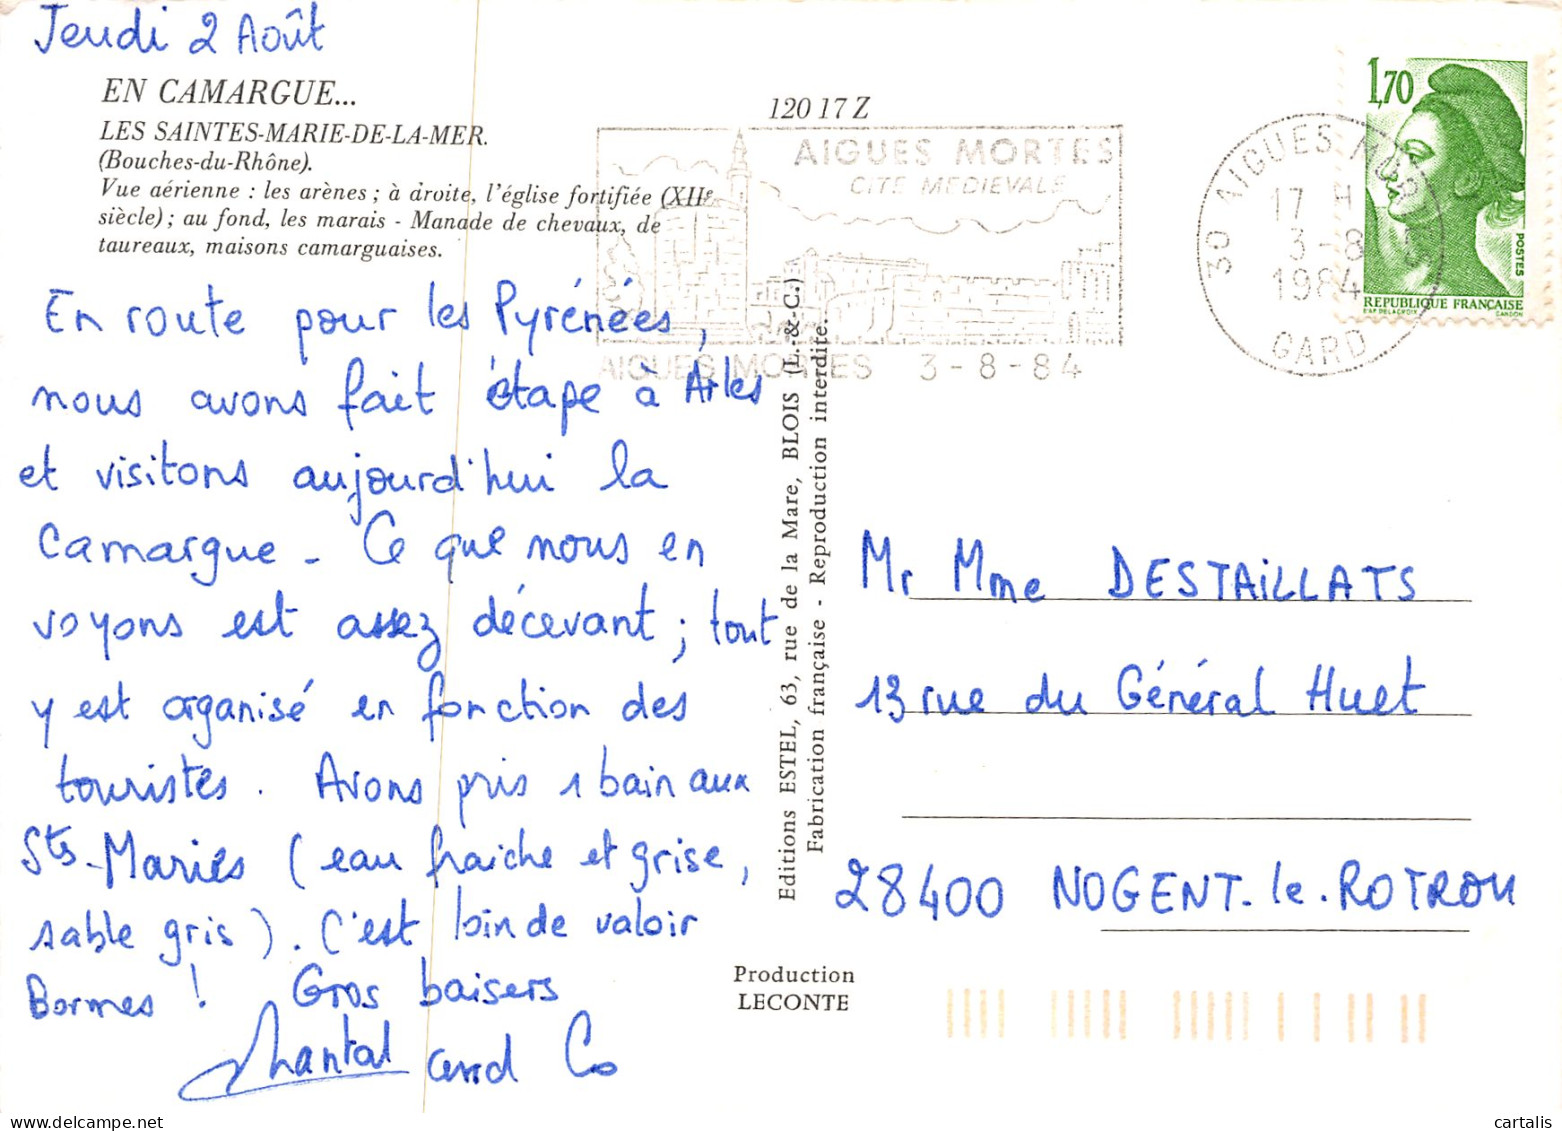 Jeudi 2 Août
EN CAMARGUE...
LES SAINTES-MARIE-DE-LA-MER.
(Bouches-du-Rhône).
Vue aérienne : les arènes ; à droite, l'église fortifiée (XIIe
siècle) ; au fond, les marais - Manade de chevaux, de
taureaux, maisons camarguaises.
En route pour les Pyrénées,
nous avons fait étape à Arles
et visitons aujourd'hui la
Camargue - Ce que nous en
voyons est assez décevant ; tout
y est organisé en fonction des
touristes. Avons pris 1 bain aux
Sts-Maries (eau fraiche et grise,
sable gris). C'est loin de valoir
Bormes ! Gros baisers
Chantal and Co
120 17 Z
AIGUES MORTES
CITE MEDIEVALE
AIGUES MORTES 3-8-84
30 AIGUES MORTES
17 H
3-8
1984
GARD
1,70
POSTES
REPUBLIQUE FRANÇAISE
D'AP. DELACROIX GANDON
Editions ESTEL, 63, rue de la Mare, BLOIS (L.-&-C.)
Fabrication française - Reproduction interdite.
Mr Mme DESTAILLATS
13 rue du Général Huet
28400 NOGENT-le-ROTROU
Production
LECONTE
cartalis